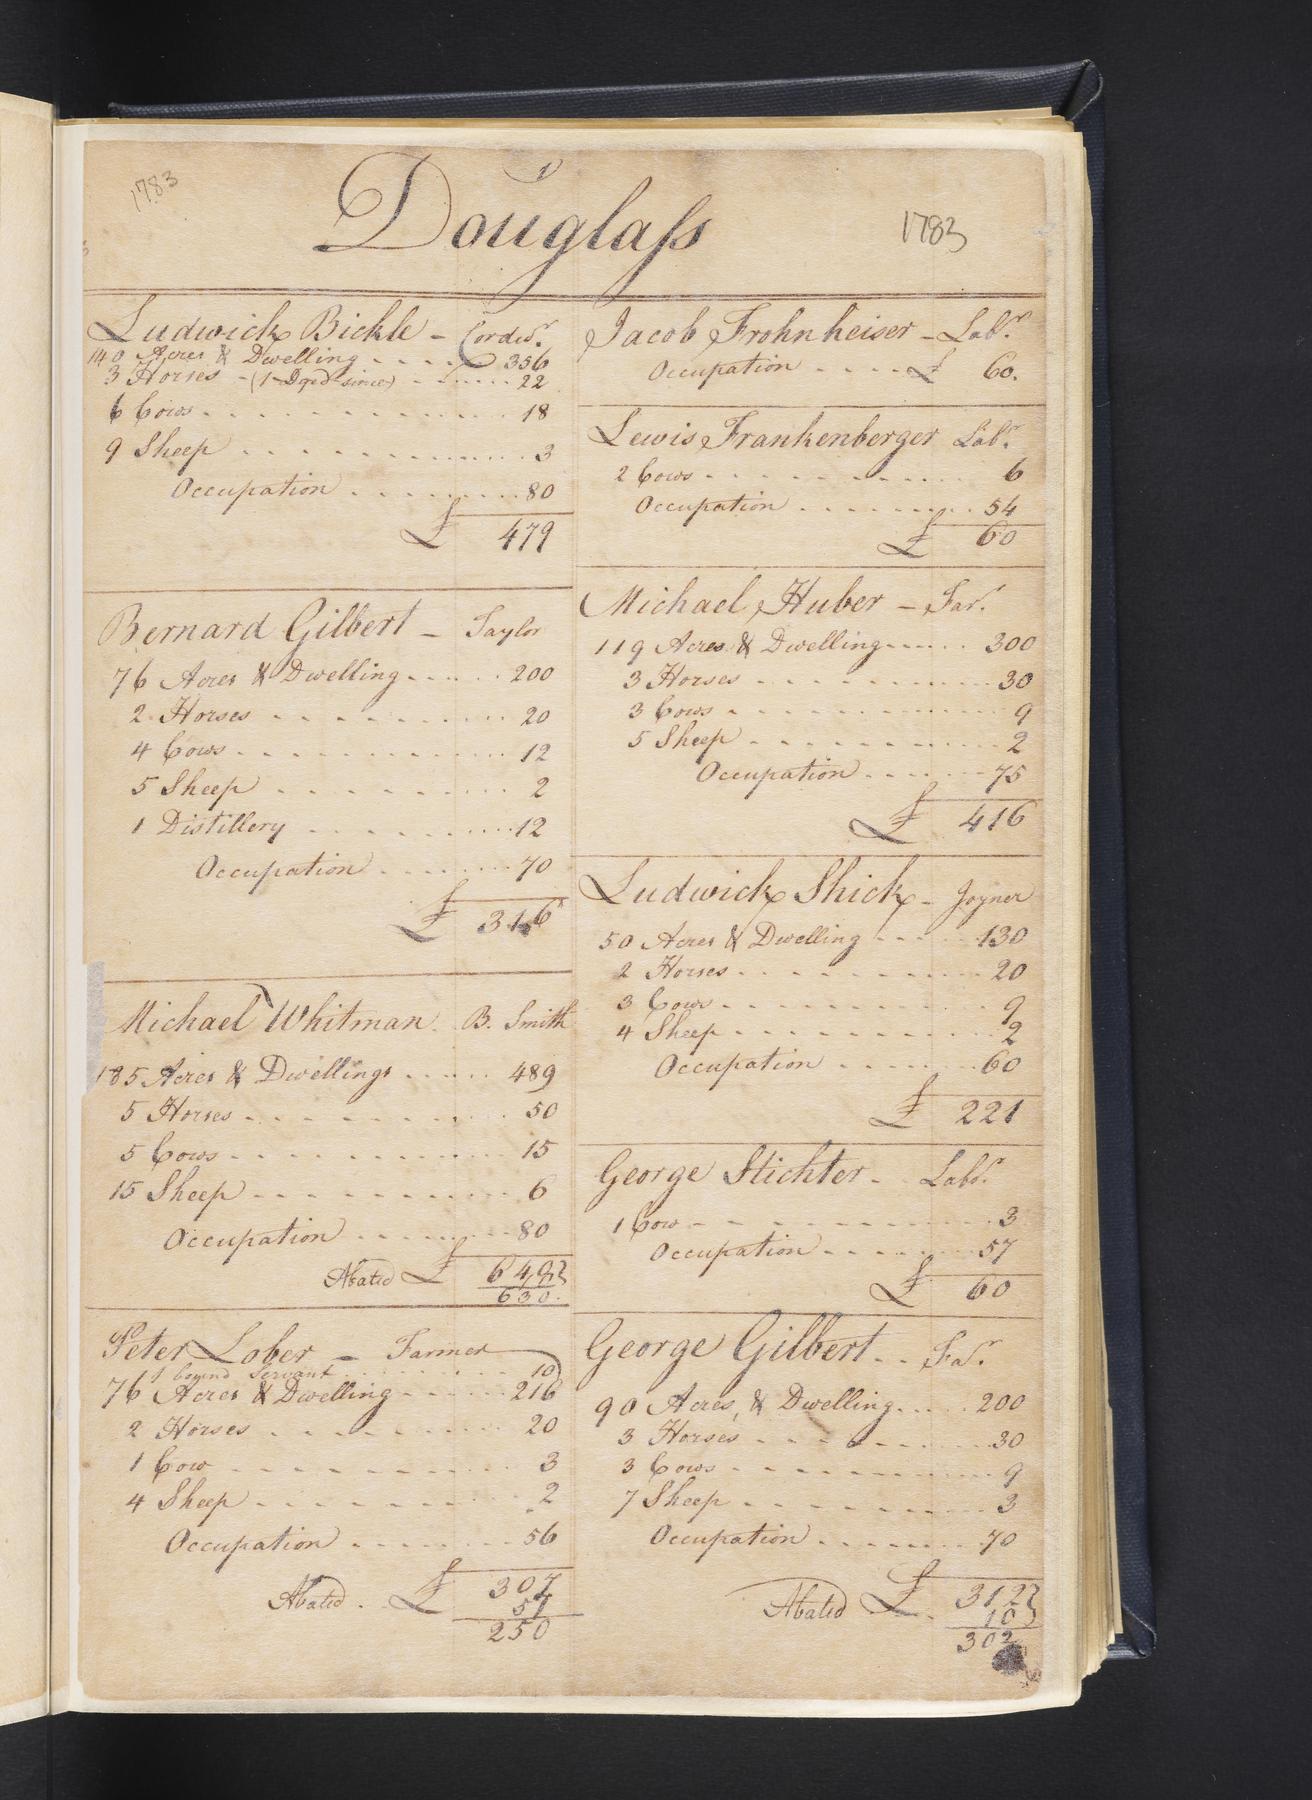 1783
1
Douglass
1783
Ludwick Bickle - Cordwr.
140 Acres & Dwelling 356
3 Horses - (1 Dyed since) 22
6 Cows 18
9 Sheep 3
Occupation 80
£ 479
Bernard Gilbert - Taylor
76 Acres & Dwelling 200
2 Horses 20
4 Cows 12
5 Sheep 2
1 Distillery 12
Occupation 70
£ 316
Michael Whitman B. Smith
185 Acres & Dwellings 489
5 Horses 50
5 Cows 15
15 Sheep 6
Occupation 80
Abated £
630
Peter Lober - Farmer
1 bound Servant 10
76 Acres & Dwelling 216
2 Horses 20
1 Cow 3
4 Sheep 2
Occupation 56
£ 307
Abated 57
250
Jacob Frohnheiser - Labr.
Occupation £ 60.
Lewis Frankenberger Labr.
2 Cows 6
Occupation 54
£ 60
Michael Huber - Far.
119 Acres & Dwelling 300
3 Horses 30
3 Cows 9
5 Sheep 2
Occupation 75
£ 416
Ludwick Shick - Joyner
50 Acres & Dwelling 130
2 Horses 20
3 Cows 9
4 Sheep 2
Occupation 60
£ 221
George Stichter - Labr.
1 Cow 3
Occupation 57
£ 60
George Gilbert - Far.
90 Acres, & Dwelling 200
3 Horses 30
3 Cows 9
7 Sheep 3
Occupation 70
£ 312
Abated 10
302